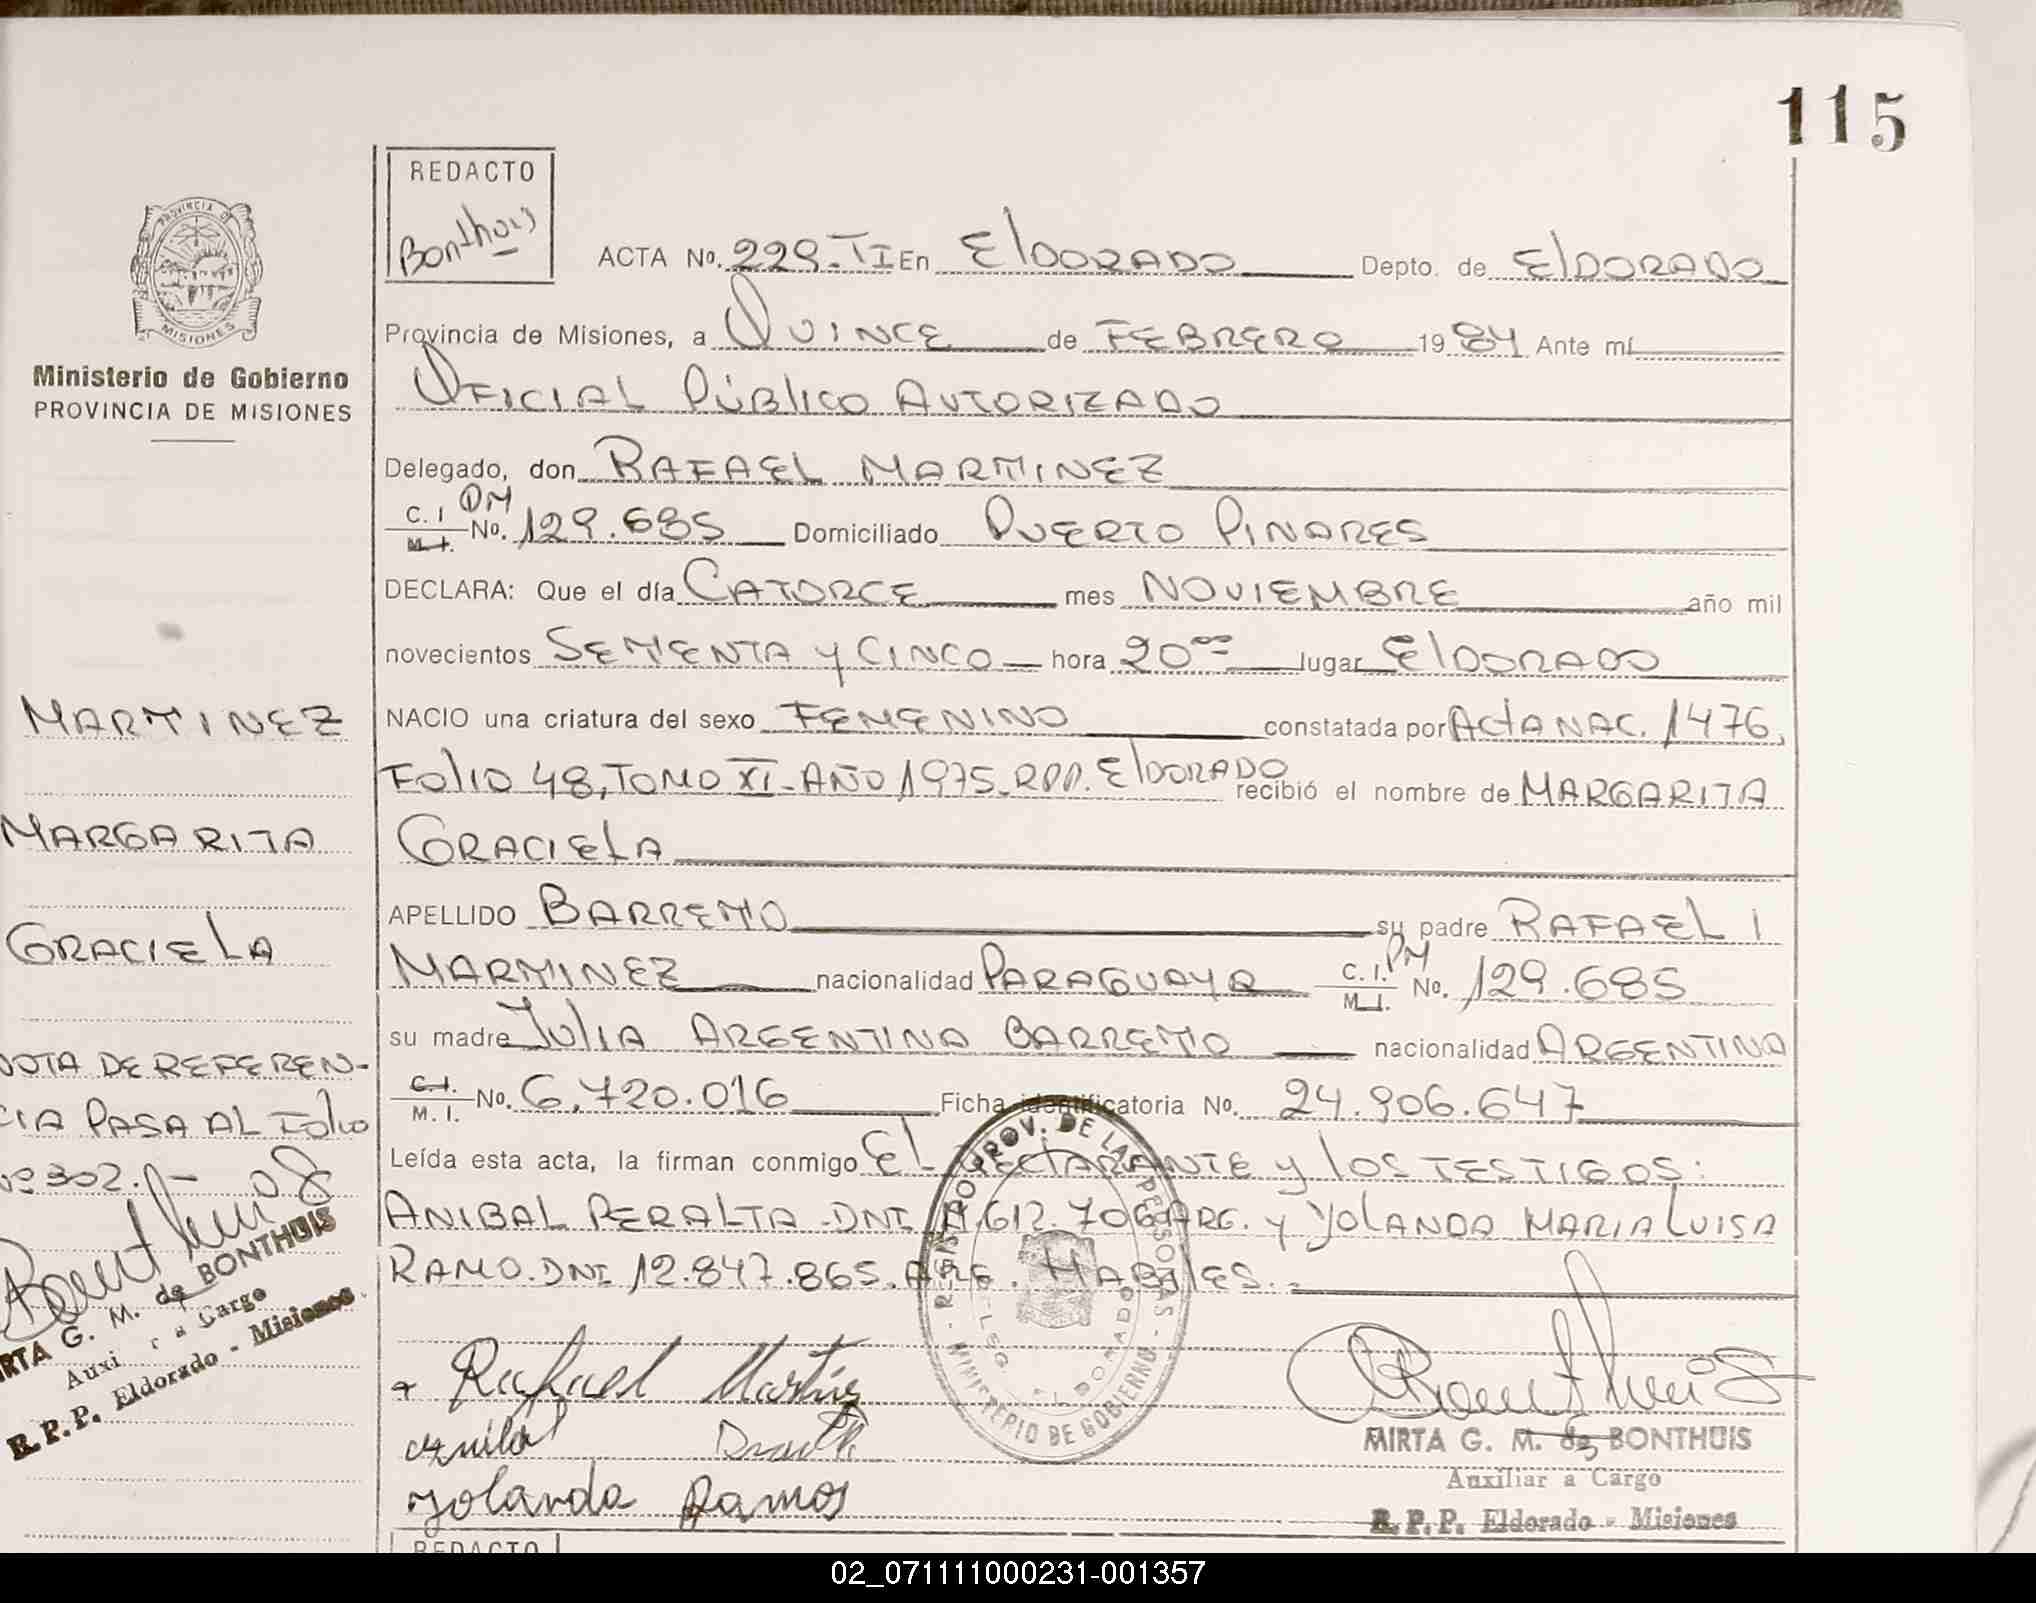 115
REDACTO
Bonthuis
ACTA Nº. 229-TI En ElDORADO Depto. de ElDORADO
Provincia de Misiones, a QUINCE de FEBRERO 1984 Ante mí
OFICIAL PÚBlICO AUTORIZADO
Delegado, don RAFAEL MARTINEZ
C. I DM
M. I. Nº. 129.685 Domiciliado PUERTO PINARES
DECLARA: Que el día CATORCE mes NOVIEMBRE año mil
novecientos SETENTA y CINCO hora 20°° lugar ElDORADO
NACIO una criatura del sexo FEMENINO constatada por ACTA NAC. 1476,
FOlIO 48, TOMO XI-AÑO 1975-RPP. ElDORADO recibió el nombre de MARGARITA
GRACIElA
APELLIDO BARRETO su padre RAFAEL
MARTINEZ nacionalidad PARAGUAYA C. I. DM
M. I. Nº. 129.685
su madre JUlIA ARGENTINA BARRETO nacionalidad ARGENTINA
C. I.
M. I. Nº. 6.720.016 Ficha identificatoria Nº. 24.906.647
Leída esta acta, la firman conmigo EL DECLARANTE y lOS TESTIGOS:
ANIBAL PERALTA-DNI 612.706 ARG. y YOLANDA MARIA LUISA
RAMO. DNI 12.847.865. ARG. HABILES.
Rafael Martinez
Yolanda Ramos
REGISTRO PROV. DE LAS PERSONAS
- MINISTERIO DE GOBIERNO -
Bonthuis
MIRTA G. M. de BONTHUIS
Auxiliar a Cargo
R. P. P. Eldorado - Misiones
REDACTO
PROVINCIA D
MISIONES
Ministerio de Gobierno
PROVINCIA DE MISIONES
MARTINEZ
MARGARITA
GRACIELA
NOTA DE REFEREN-
CIA PASA AL FOlIO
Nº 302.-
Bonthuis
RTA G. M. de BONTHUIS
Auxi r a Cargo
R. P. P. Eldorado - Misiones
02_071111000231-001357